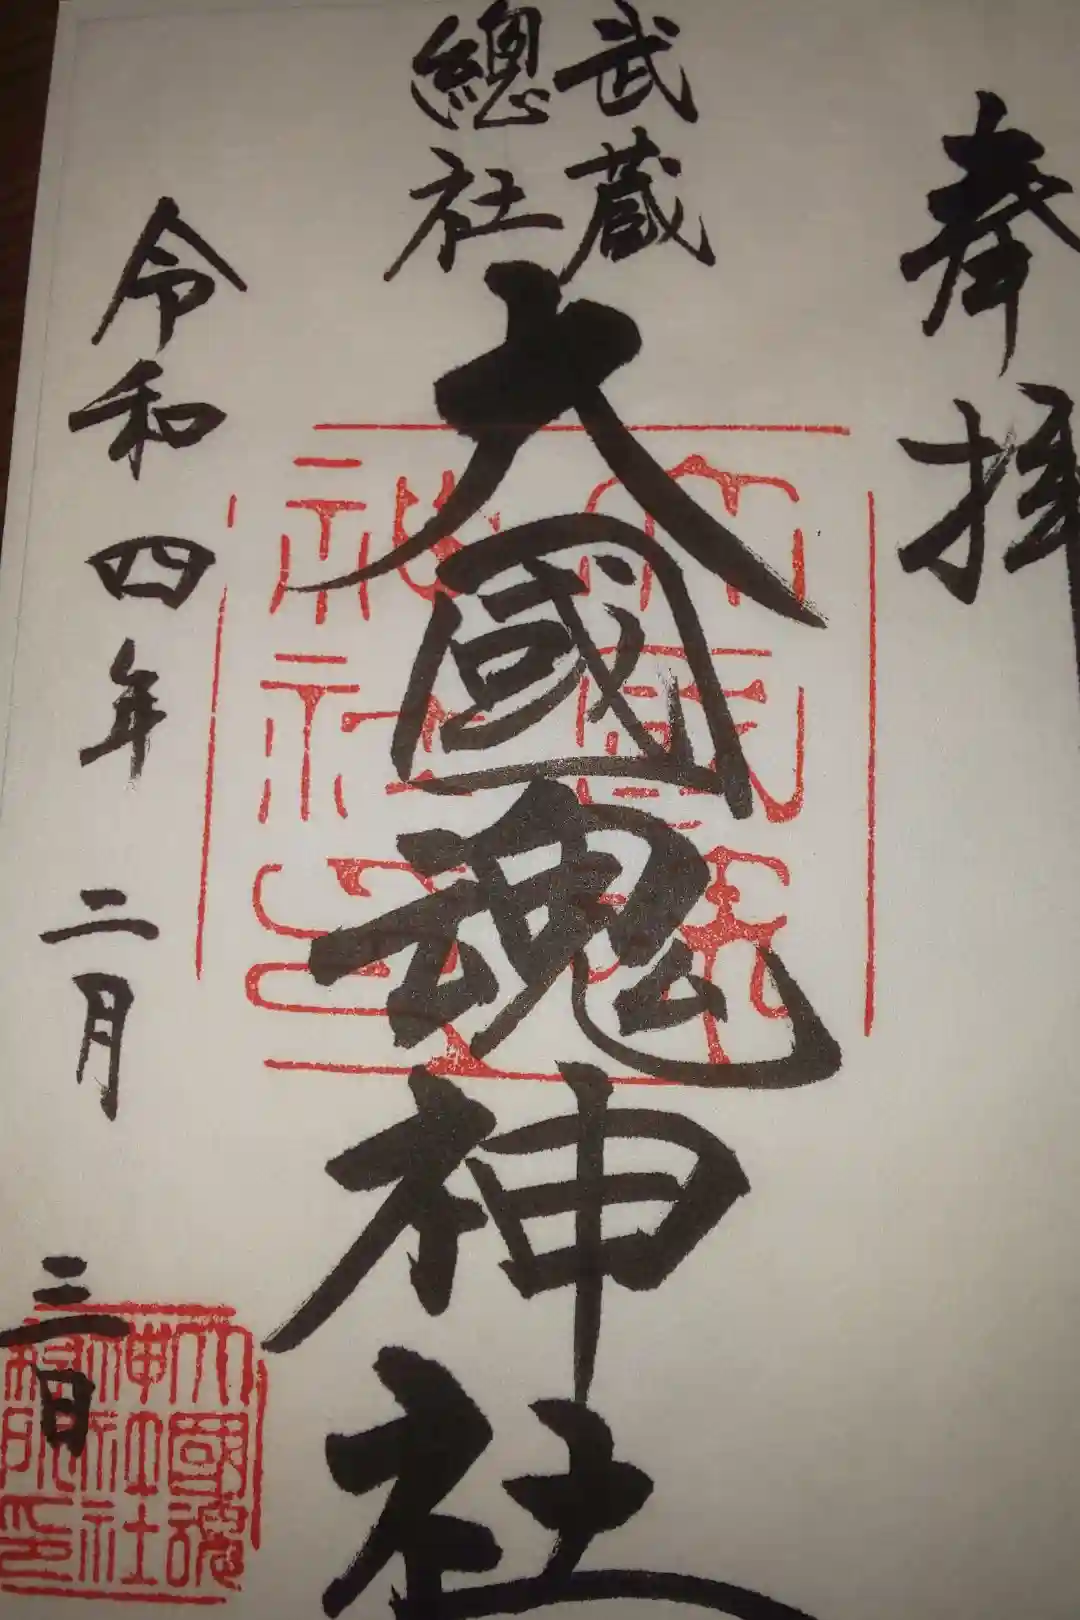 奉拝
武蔵
總社
大國魂神社
令和四年二月三日
大國魂
神社
大國魂
神社社
務所印